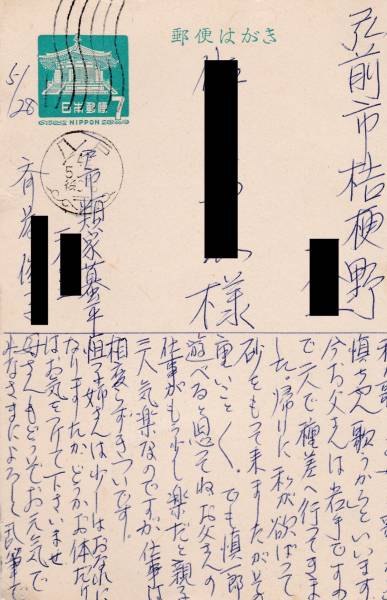 郵便はがき
日本郵便
7
NIPPON
弘前市桔梗野
様
5/28
市類家蓴平
慎ちゃん歌うからといいます
今お父さんは岩手ですの
で二人で種差へ行ってきま
した。帰りに私が欲ばって
砂をもって来ましたがその
重いこと〱。でも慎一郎
遊べると思ってねお父さんの
仕事がもう少し楽だと親子
三人気楽なのですが仕事は
相変らずきついです。
恒子姉さんは少しはお楽に
なりましたかどうかお体だけ
はお気をつけて下さいませ
母さんもどうぞお元気で
みなさまによろしく